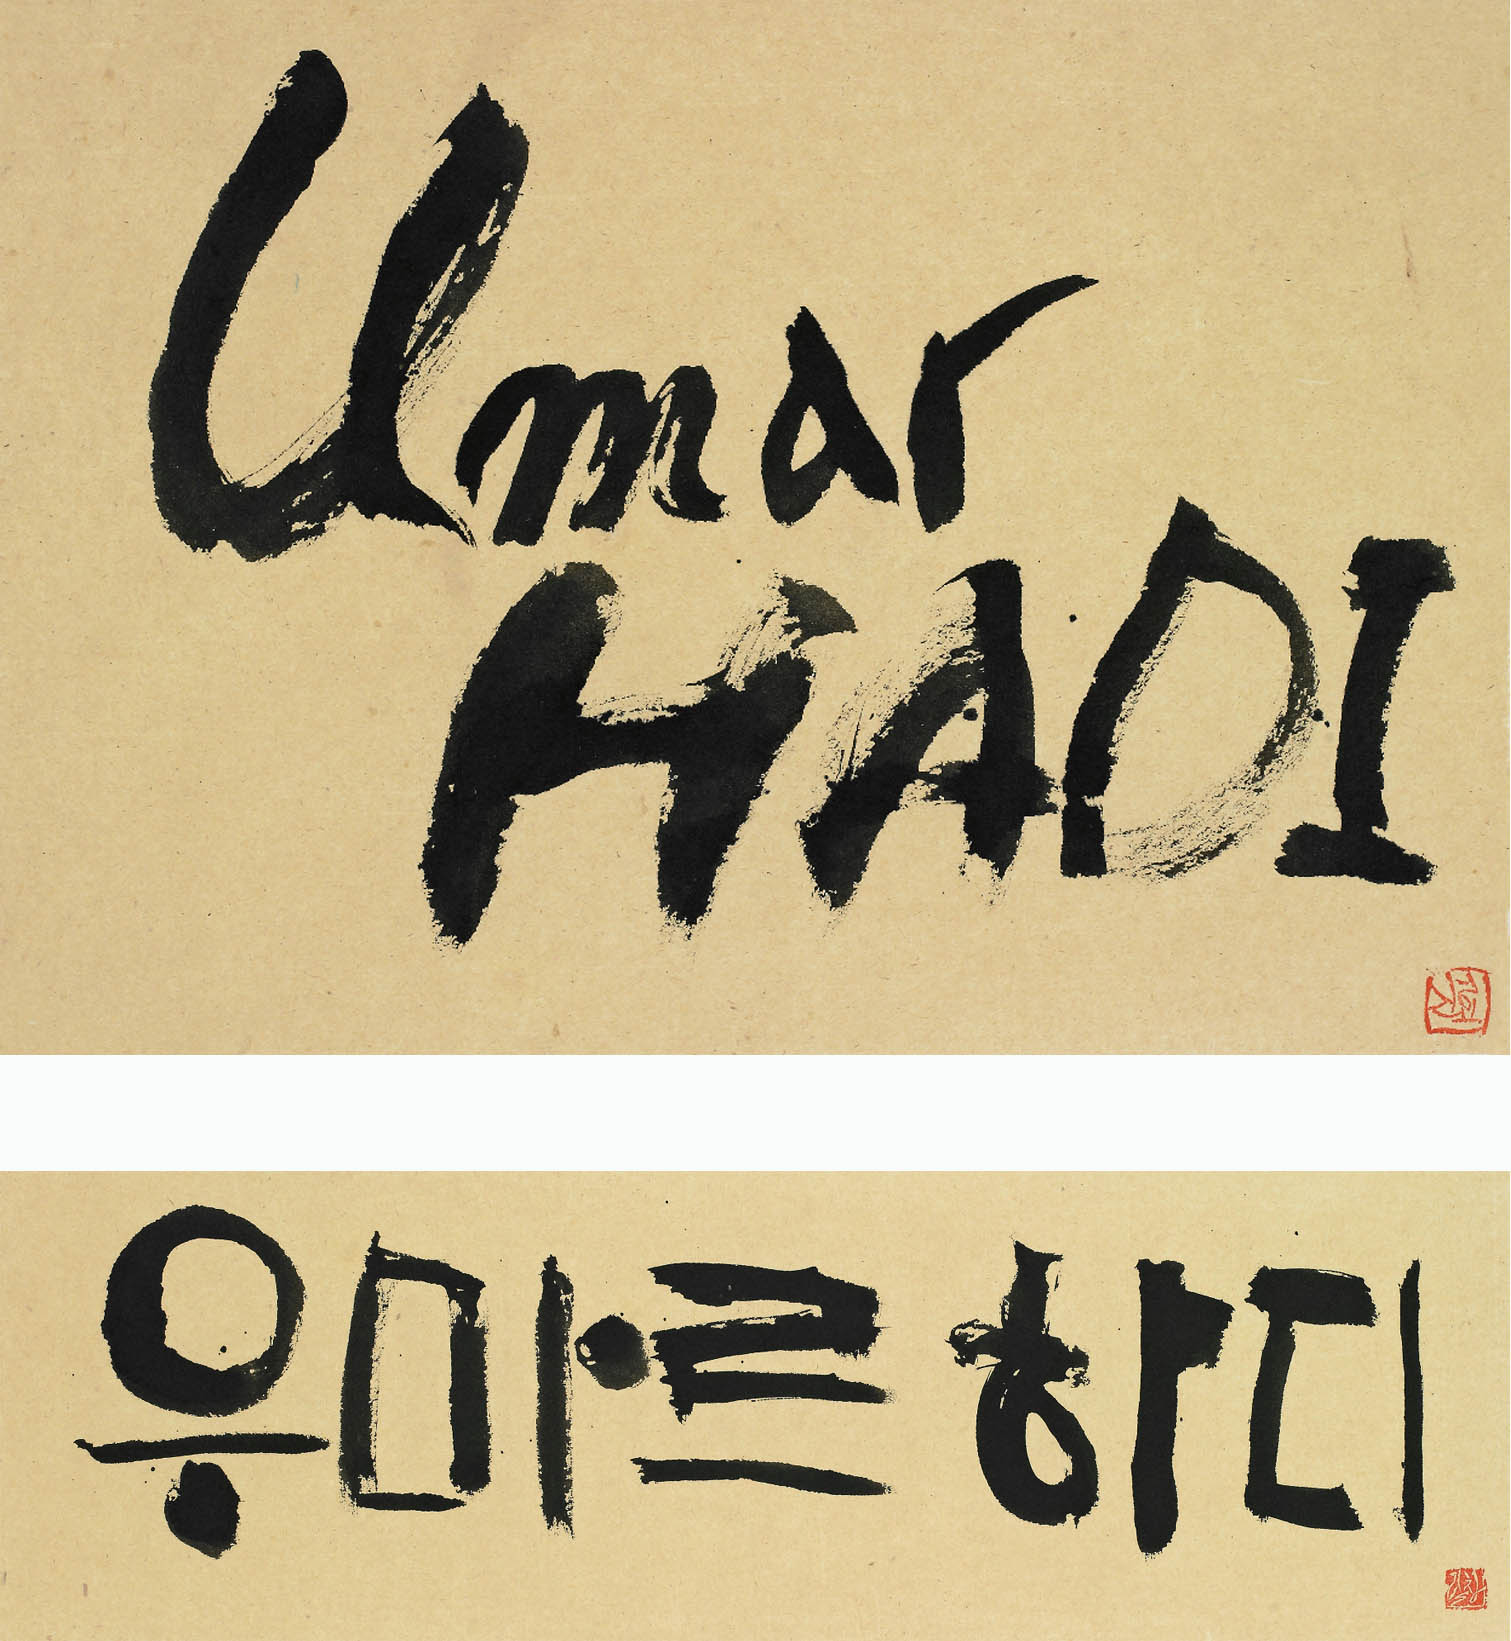 Umar
HADI
우마르 하디